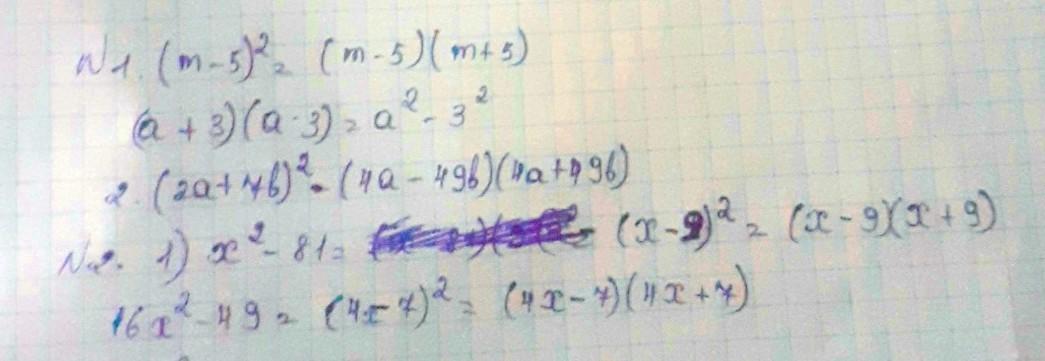 N1. (m-5)² = (m-5)(m+5)
(a+3)(a-3) = a² - 3²
2. (2a+7b)² = (4a-49b)(4a+49b)
N2. 1) x² - 81 = (x-9)² = (x-9)(x+9)
16x² - 49 = (4x-7)² = (4x-7)(4x+7)